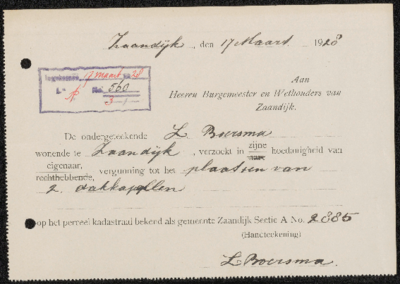 Zaandijk, den 17 Maart 1928
Ingekomen 17 maart 28
No. 560
Aan
Heeren Burgemeester en Wethouders van
Zaandijk.
De ondergeteekende L Boersma
wonende te Zaandijk, verzoekt in zijne hoedanigheid van
eigenaar,
rechthebbende, vergunning tot het plaatsen van
2 dakkapellen
op het perceel kadastraal bekend als gemeente Zaandijk Sectie A No. 2885
(Handteekening)
L Boersma.